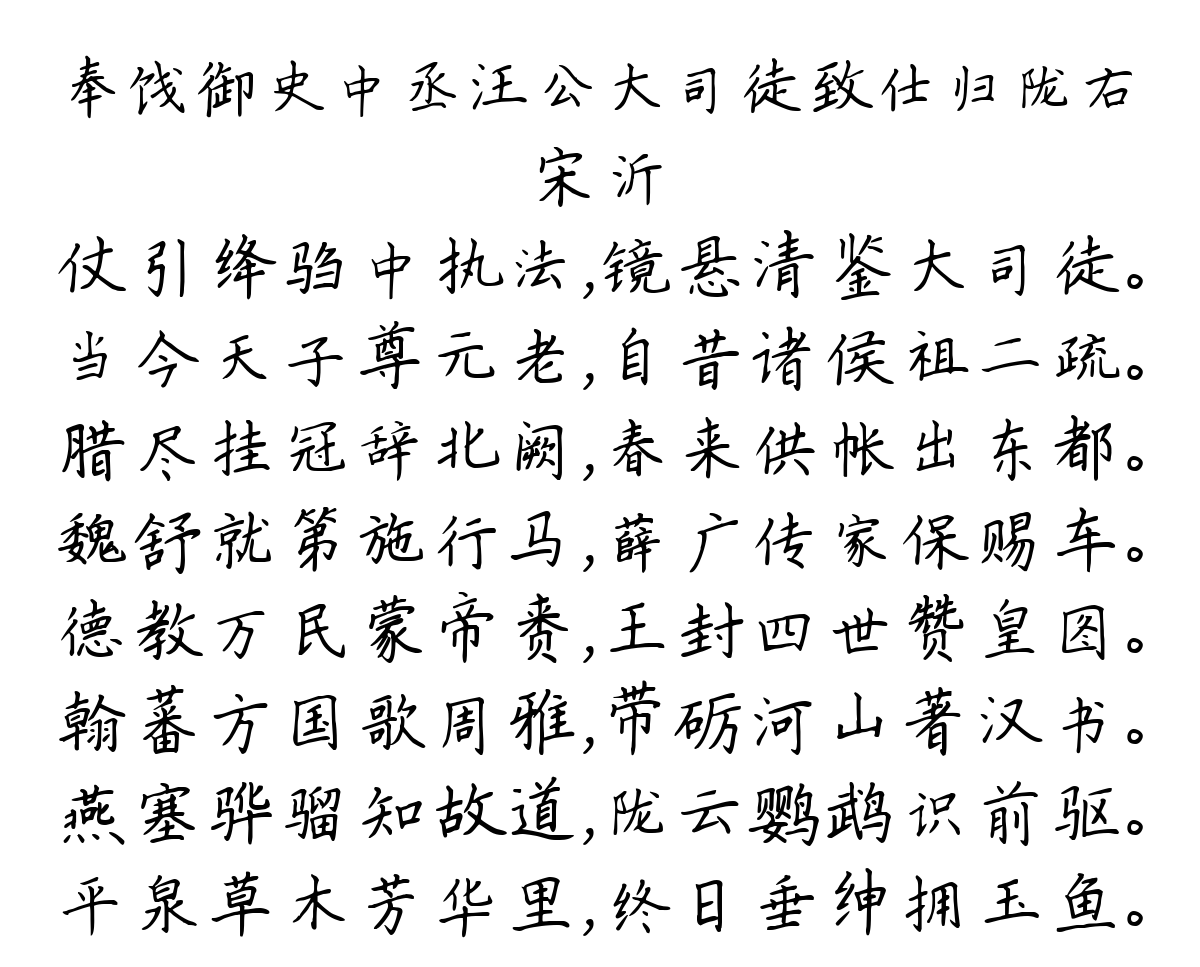 奉饯御史中丞汪公大司徒致仕归陇右
宋沂
仗引绛驺中执法,镜悬清鉴大司徒。
当今天子尊元老,自昔诸侯祖二疏。
腊尽挂冠辞北阙,春来供帐出东都。
魏舒就第施行马,薛广传家保赐车。
德教万民蒙帝赉,王封四世赞皇图。
翰蕃方国歌周雅,带砺河山著汉书。
燕塞骅骝知故道,陇云鹦鹉识前驱。
平泉草木芳华里,终日垂绅拥玉鱼。